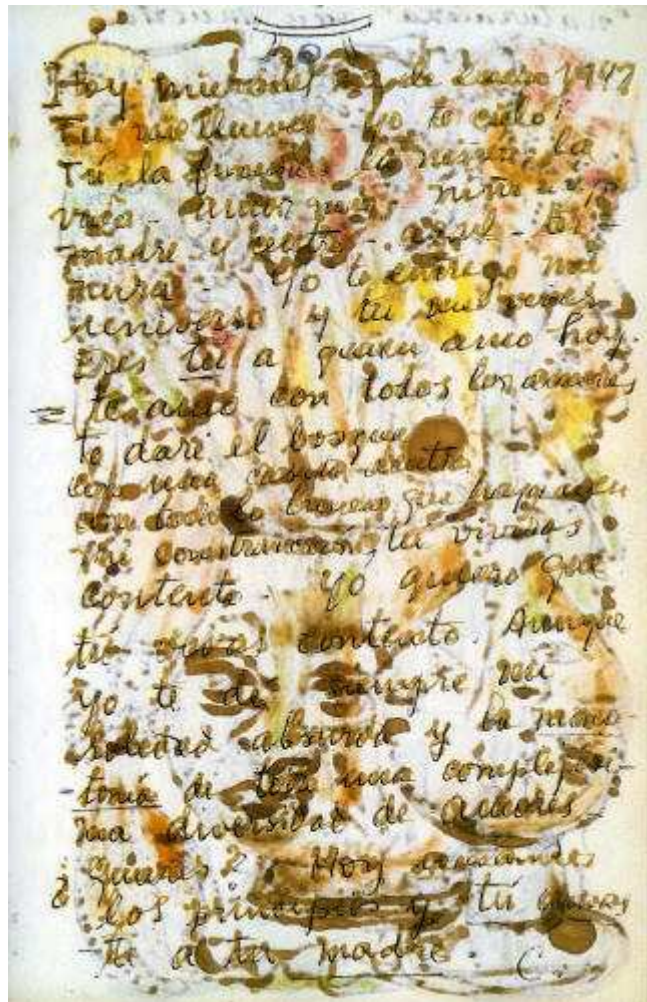 Hoy miércoles de Enero 1947
Tú me llueves - yo te cielo
Tú, la finura, la niñez, la
vida - amor mío - niño - yo
madre y centro - azul - ter-
nura - Yo te entrego mi
universo y tú me vives
Eres tú a quien amo hoy.
te amo con todos los amores
te daré el bosque
con una casita dentro
con todo lo bueno que haya en
mi construcción, tú vivirás
contento - Yo quiero que
tú vivas contento. Aunque
yo te dé siempre mi
soledad absurda y la mono-
tonía de toda una complejísi-
ma diversidad de amores -
¿Quieres? Hoy
los principios y tú
a tu madre.
C.